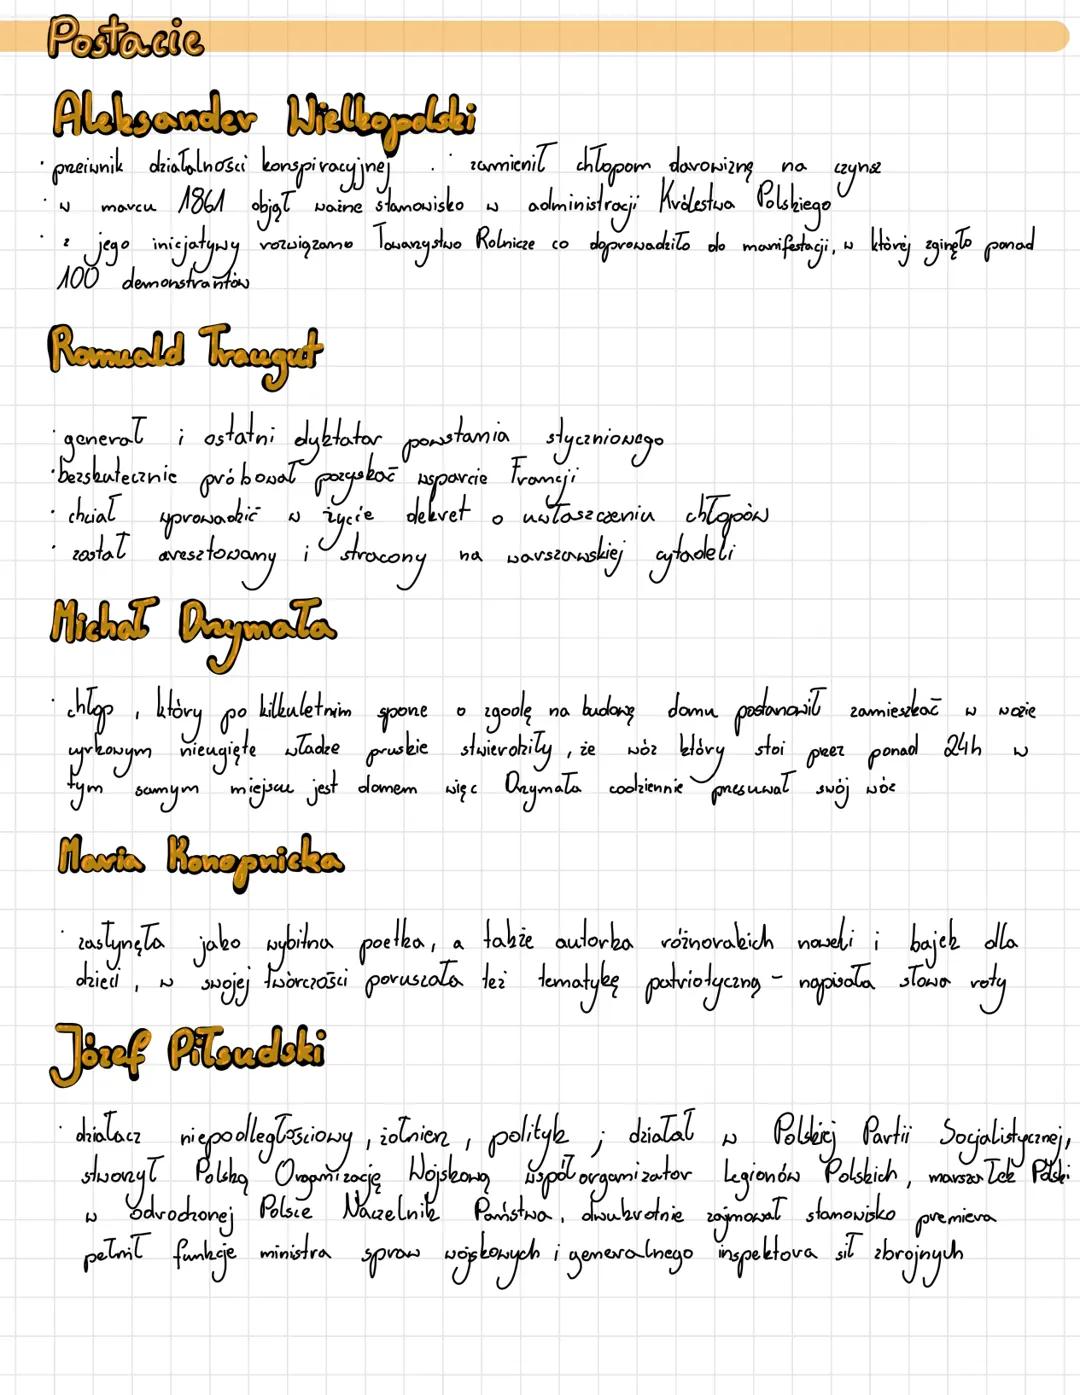 Postacie
Aleksander Wielkopolski
· przeiwnik działalności konspiracyjnej · · zamienił chłopom darowiznę na czynsz
· w marcu 1861 objął ważne stanowisko w administracji Królestwa Polskiego
· z jego inicjatywy rozwiązano Towarzystwo Rolnicze co doprowadziło do manifestacji, w której zginęło ponad
100 demonstrantów
Romuald Traugut
· generał i ostatni dyktator powstania styczniowego
· bezskutecznie próbował pozyskać wsparcie Francji
· chciał wprowadzić w życie dekret o uwłaszczeniu chłopów
· został aresztowany i stracony na warszawskiej cytadeli
Michał Drzymała
· chłop, który po kilkuletnim sporze o zgodę na budowę domu postanowił zamieszkać w wozie
cyrkowym nieugięte władze pruskie stwierdziły, że wóz który stoi przez ponad 24h w
tym samym miejscu jest domem więc Drzymała codziennie przesuwał swój wóz
Maria Konopnicka
· zasłynęła jako wybitna poetka, a także autorka różnorakich noweli i bajek dla
dzieci, w swojej twórczości poruszała też tematykę patriotyczną - napisała słowa roty
Józef Piłsudski
· działacz niepodległościowy, żołnierz, polityk ; działał w Polskiej Partii Socjalistycznej,
stworzył Polską Organizację Wojskową współorganizator Legionów Polskich, marszałek Polski
w odrodzonej Polsce Naczelnik Państwa, dwukrotnie zajmował stanowisko premiera
pełnił funkcje ministra spraw wojskowych i generalnego inspektora sił zbrojnych